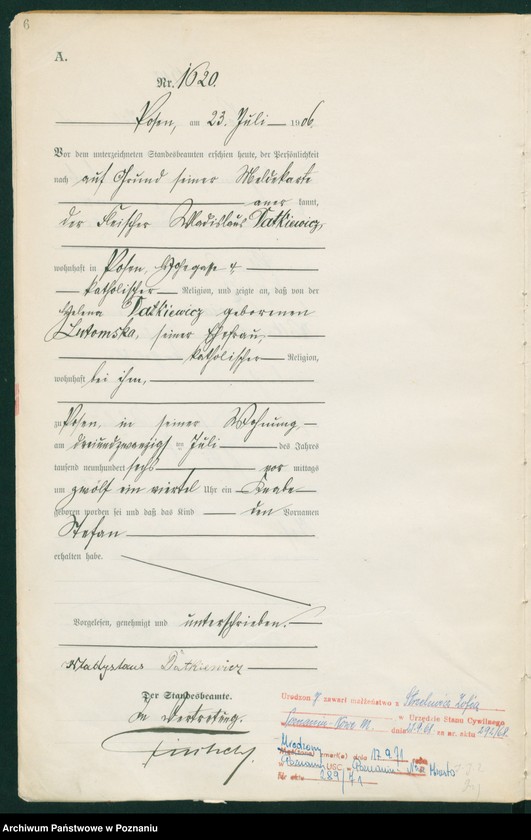 6
A.
Nr. 1620.
Posen, am 23. Juli 1906.
Vor dem unterzeichneten Standesbeamten erschien heute, der Persönlichkeit
nach auf Grund seiner Meldekarte
aner kannt,
der Fleischer Wladislaus Datkiewicz,
wohnhaft in Posen,
katholischer Religion, und zeigte an, daß von der
Helena Datkiewicz geborenen
Lutomska, seiner Ehefrau,
katholischer Religion,
wohnhaft bei ihm,
zu Posen, in seiner Wohnung
am dreiundzwanzigsten Juli des Jahres
tausend neunhundert sechs vor mittags
um zwölf ein viertel Uhr ein Knabe
geboren worden sei und daß das Kind den Vornamen
Stefan
erhalten habe.
Vorgelesen, genehmigt und unterschrieben.
Wladyslaus Datkiewicz
Der Standesbeamte.
In Vertretung.
Urodzony zawarł małżeństwo z Zofią
Poznaniu-Nowe M. w Urzędzie Stanu Cywilnego
dnia za nr. aktu 292/61
Urodzony zmarł(a) dnia 17.9.71
w Poznaniu USC Poznaniu Nowe Miasto
Nr aktu 289/71
Archiwum Państwowe w Poznaniu